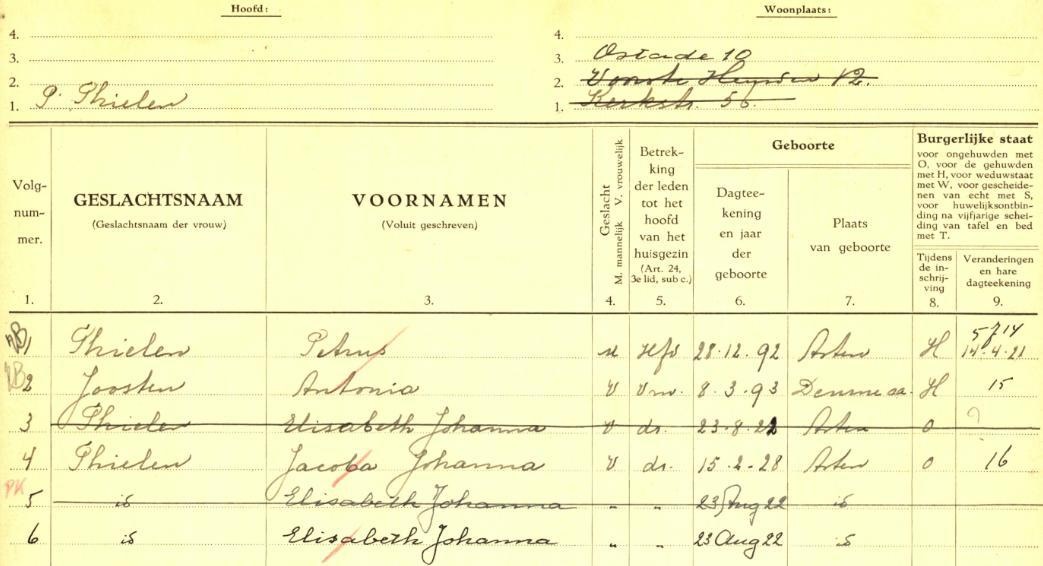 Hoofd: Woonplaats:
4. 4.
3. 3. Ostade 10
2. 2. Voorste Heusden 12.
1. P. Thielen 1. Kerkstr. 56.
Volg-
num-
mer.
1.
GESLACHTSNAAM
(Geslachtsnaam der vrouw)
2.
VOORNAMEN
(Voluit geschreven)
3.
Geslacht
M. mannelijk V. vrouwelijk
4.
Betrek-
king
der leden
tot het
hoofd
van het
huisgezin
(Art. 24,
3e lid, sub c.)
5.
Geboorte
Dagtee-
kening
en jaar
der
geboorte
6.
Plaats
van geboorte
7.
Burgerlijke staat
voor ongehuwden met
O, voor de gehuwden
met H, voor weduwstaat
met W, voor gescheide-
nen van echt met S,
voor huwelijksontbin-
ding na vijfjarige schei-
ding van tafel en bed
met T.
Tijdens
de in-
schrij-
ving
8.
Veranderingen
en hare
dagteekening
9.
1 Thielen Petrus M Hfd 28.12.92 Asten H 5714 14-4-21
2 Joosten Antonia V Vrw. 8.3.93 Deurne ca. H 15
3 Thielen Elisabeth Johanna V dr. 23-8.22 Asten O ?
4 Thielen Jacoba Johanna V dr. 15-2-28 Asten O 16
PK
5 id Elisabeth Johanna " " 23 Aug 22 id
6 id Elisabeth Johanna " " 23 Aug 22 id